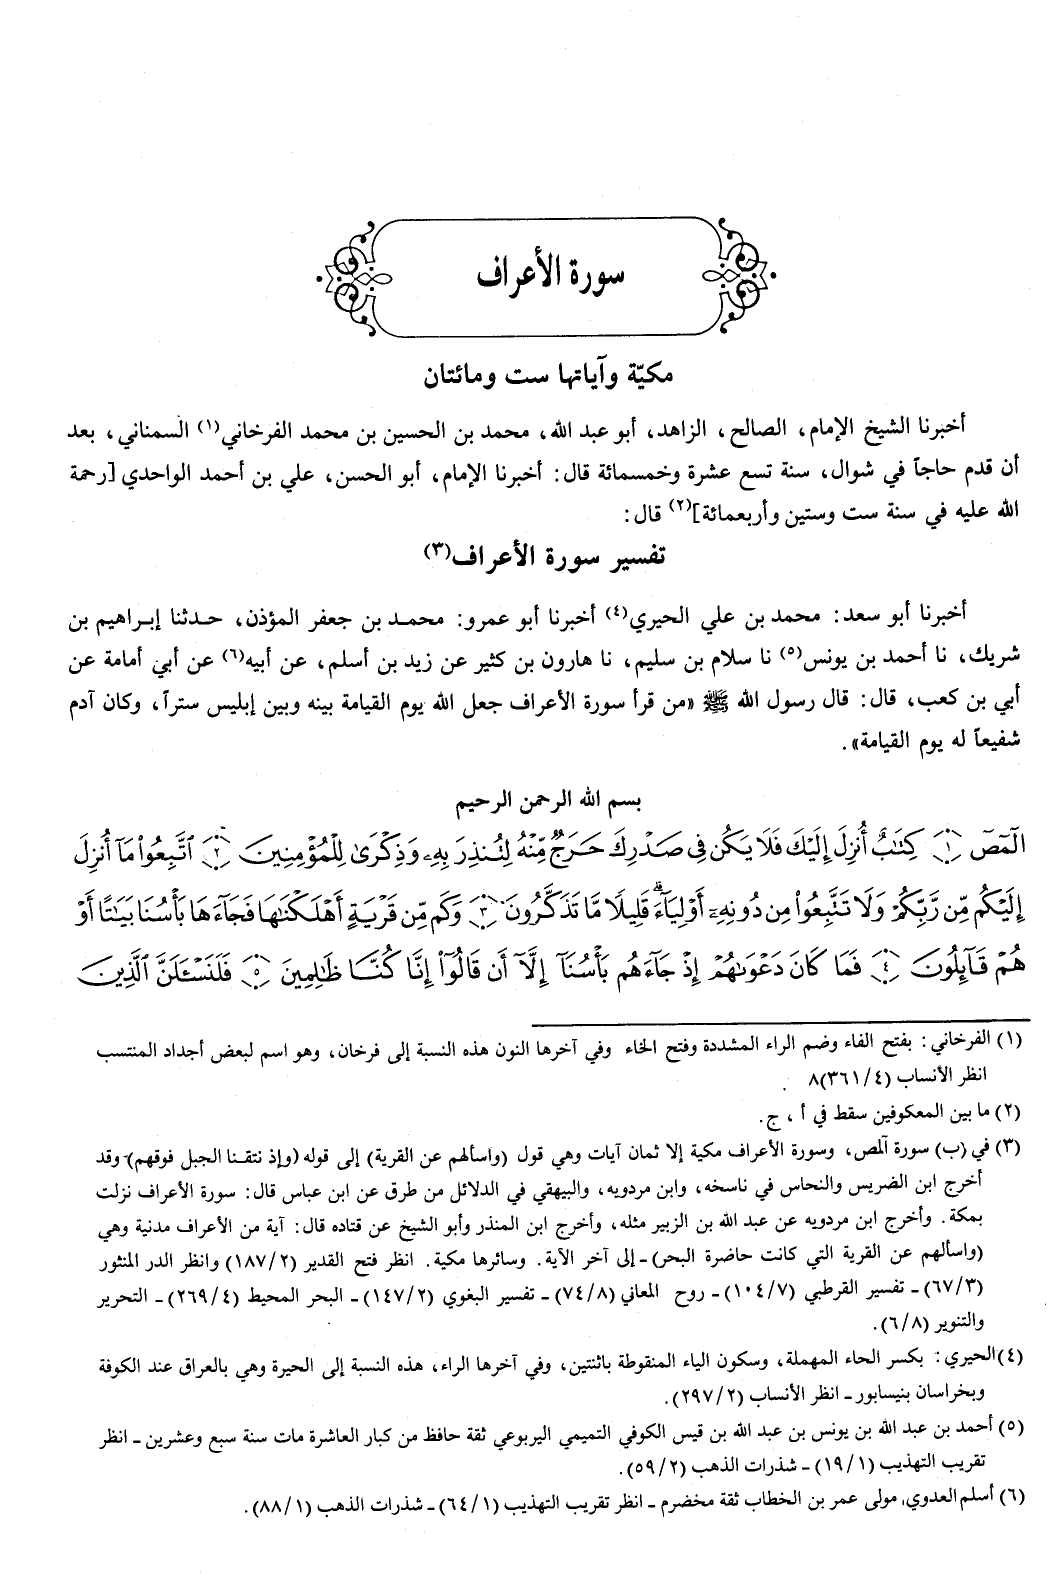 سورة الأعراف
مكيّة وآياتها ست ومائتان
أخبرنا الشيخ الإمام، الصالح، الزاهد، أبو عبد الله، محمد بن الحسين بن محمد الفرخاني(١) السمناني، بعد
أن قدم حاجاً في شوال، سنة تسع عشرة وخمسمائة قال: أخبرنا الإمام، أبو الحسن، علي بن أحمد الواحدي [رحمة
الله عليه في سنة ست وستين وأربعمائة](٢) قال:
تفسير سورة الأعراف(٣)
أخبرنا أبو سعد: محمد بن علي الحيري(٤) أخبرنا أبو عمرو: محمد بن جعفر المؤذن، حدثنا إبراهيم بن
شريك، نا أحمد بن يونس(٥) نا سلام بن سليم، نا هارون بن كثير عن زيد بن أسلم، عن أبيه(٦) عن أبي أمامة عن
أبي بن كعب، قال: قال رسول الله ﷺ «من قرأ سورة الأعراف جعل الله يوم القيامة بينه وبين إبليس ستراً، وكان آدم
شفيعاً له يوم القيامة».
بسم الله الرحمن الرحيم
الٓمٓصٓ ﴿١﴾ كِتَٰبٌ أُنزِلَ إِلَيْكَ فَلَا يَكُن فِى صَدْرِكَ حَرَجٌ مِّنْهُ لِتُنذِرَ بِهِۦ وَذِكْرَىٰ لِلْمُؤْمِنِينَ ﴿٢﴾ ٱتَّبِعُوا۟ مَآ أُنزِلَ
إِلَيْكُم مِّن رَّبِّكُمْ وَلَا تَتَّبِعُوا۟ مِن دُونِهِۦٓ أَوْلِيَآءَ ۗ قَلِيلًا مَّا تَذَكَّرُونَ ﴿٣﴾ وَكَم مِّن قَرْيَةٍ أَهْلَكْنَٰهَا فَجَآءَهَا بَأْسُنَا بَيَٰتًا أَوْ
هُمْ قَآئِلُونَ ﴿٤﴾ فَمَا كَانَ دَعْوَىٰهُمْ إِذْ جَآءَهُم بَأْسُنَآ إِلَّآ أَن قَالُوٓا۟ إِنَّا كُنَّا ظَٰلِمِينَ ﴿٥﴾ فَلَنَسْـَٔلَنَّ ٱلَّذِينَ
(١) الفرخاني: بفتح الفاء وضم الراء المشددة وفتح الخاء وفي آخرها النون هذه النسبة إلى فرخان، وهو اسم لبعض أجداد المنتسب
انظر الأنساب (٣٦١/٤)٨
(٢) ما بين المعكوفين سقط في أ، ج.
(٣) في (ب) سورة آلمص، وسورة الأعراف مكية إلا ثمان آيات وهي قول (واسألهم عن القرية) إلى قوله (وإذ نتقنا الجبل فوقهم) - وقد
أخرج ابن الضريس والنحاس في ناسخه، وابن مردويه، والبيهقي في الدلائل من طرق عن ابن عباس قال: سورة الأعراف نزلت
بمكة. وأخرج ابن مردويه عن عبد الله بن الزبير مثله، وأخرج ابن المنذر وأبو الشيخ عن قتاده قال: آية من الأعراف مدنية وهي
(واسألهم عن القرية التي كانت حاضرة البحر) - إلى آخر الآية. وسائرها مكية. انظر فتح القدير (١٨٧/٢) وانظر الدر المنثور
(٦٧/٣) - تفسير القرطبي (١٠٤/٧) - روح المعاني (٧٤/٨) - تفسير البغوي (١٤٧/٢) - البحر المحيط (٢٦٩/٤) - التحرير
والتنوير (٦/٨).
(٤) الحيري: بكسر الحاء المهملة، وسكون الياء المنقوطة باثنتين، وفي آخرها الراء، هذه النسبة إلى الحيرة وهي بالعراق عند الكوفة
وبخراسان بنيسابور - انظر الأنساب (٢٩٧/٢).
(٥) أحمد بن عبد الله بن يونس بن عبد الله بن قيس الكوفي التميمي اليربوعي ثقة حافظ من كبار العاشرة مات سنة سبع وعشرين - انظر
تقريب التهذيب (١٩/١) - شذرات الذهب (٥٩/٢).
(٦) أسلم العدوي، مولى عمر بن الخطاب ثقة مخضرم - انظر تقريب التهذيب (٦٤/١) - شذرات الذهب (٨٨/١).